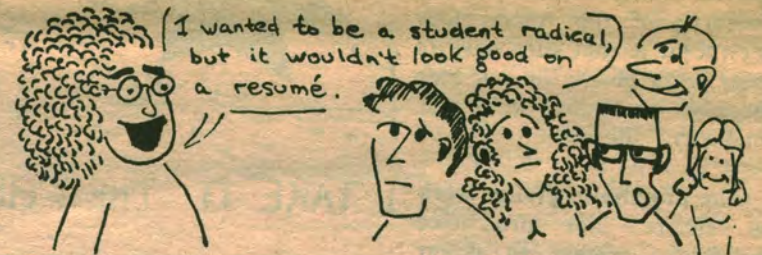 I wanted to be a student radical,
but it wouldn't look good on
a resumé.